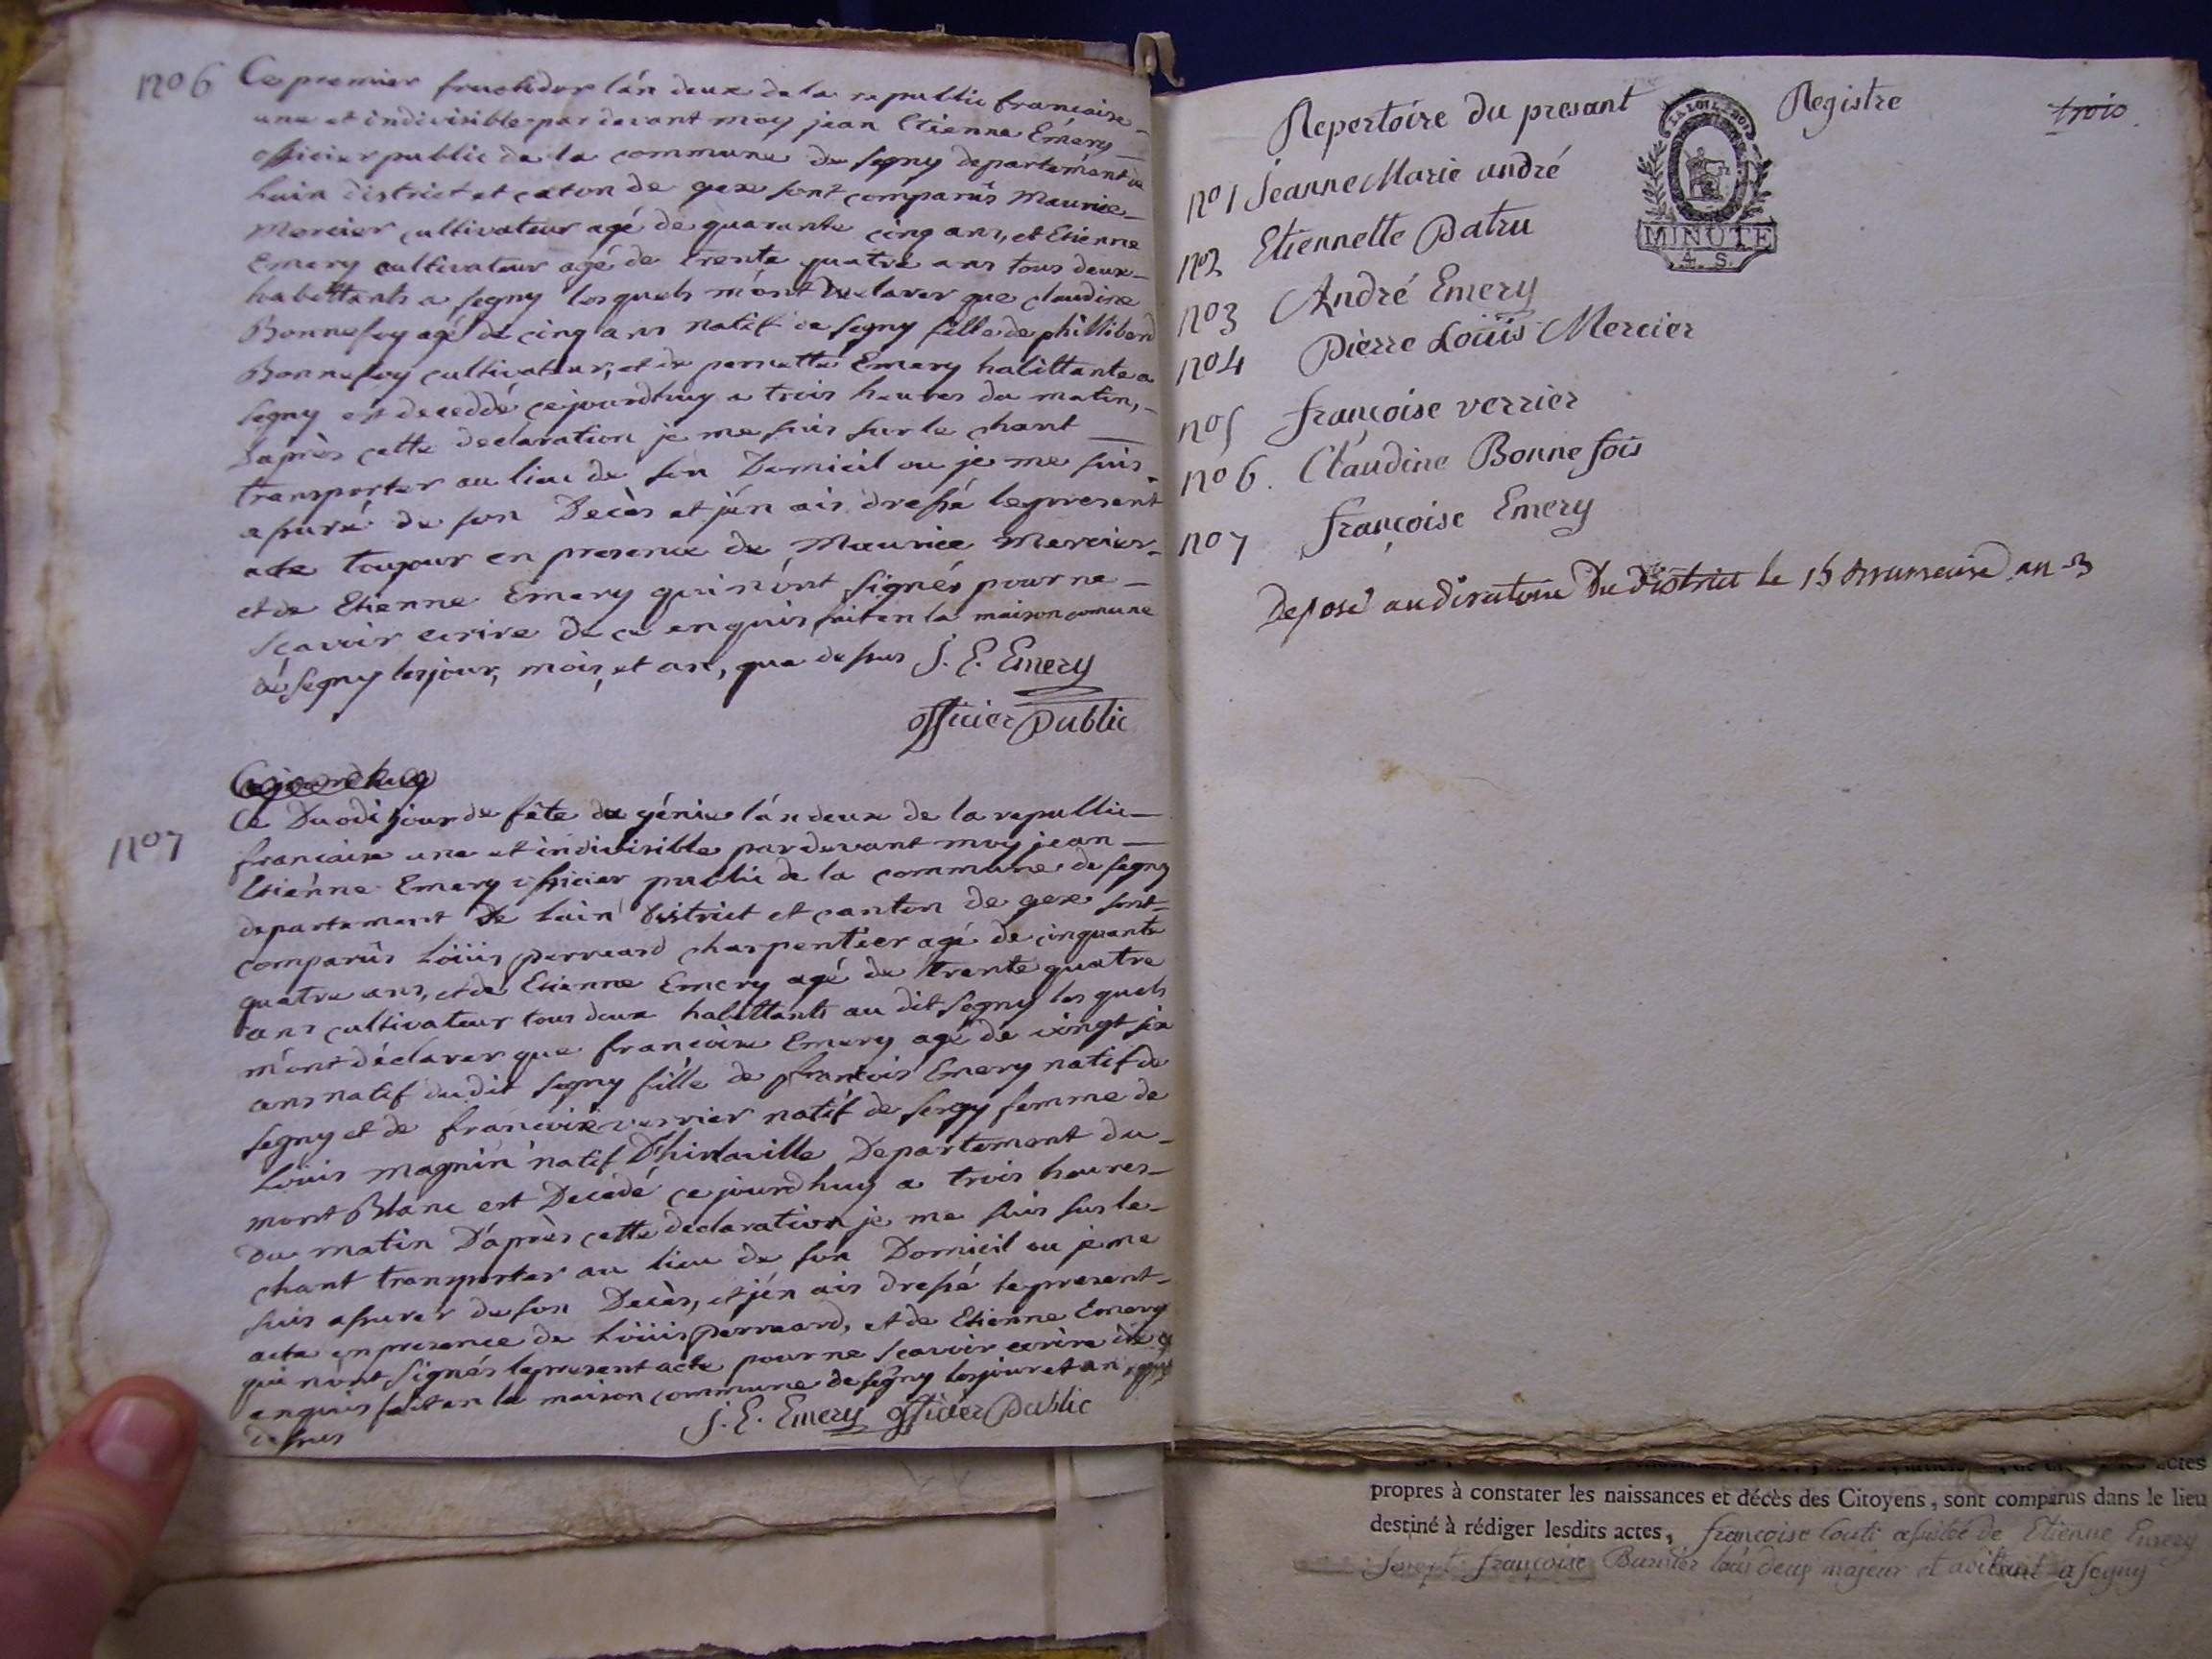 no 6
Ce premier fructidor lán deux de la republic francaise
une et indivisible par devant moy jean Etienne Emery
officier public de la commune de segny departement de
lain district et caton de gex sont comparûs Maurice
Mercier cultivateur agé de quarante cinq ans, et Etienne
Emery cultivateur agé de trente quatre ans tous deux
habittants a segny lesquels m'ont declarer que claudine
Bonnefoy agé de cinq ans natif de segny fille de phillibert
Bonnefoy cultivateur, et de pernette Emery habittante a
segny est deceddé cejourdhuy a trois heures du matin,
Daprès cette declaration je me suis sur le chant
transporter au lieu de son Domicil ou je me suis
assuré de son Decès et j'én ais dressé le present
acte toujour en presence de Maurice Mercier
et de Etienne Emery qui n'ont signés pour ne
sçavoir ecrire de ce enquis fait en la maison comune
de segny les jour, mois, et an, que dessus J. E. Emery
officier Public
Cejourdhuy
no 7
Ce Duodi jour de fête du génie l'án deux de la republic
francaise une et indivisible pardevant moy jean
Etiénne Emery officier public de la commune de segny
departement De lain District et canton de gex sont
comparûs Loüis perreard charpentier agé de cinquante
quatre ans, et de Etienne Emery agé de trente quatre
ans cultivateur tous deux habittants au dit segny les quels
m'ont déclarer que francoise Emery agé de vingt six
ans natif dudit segny fille de francois Emery natif de
segny et de francoise verrier natif de sergy femme de
Loüis magnin natif D'hinlaville Departement du
mont Blanc est Decedé cejourdhuy a trois heures
du matin D'áprès cette declaration je me suis sur le
chant transporter au lieu de son Domicil ou je me
suis assurer de son Decès, et j'én ais dressé le present
acte en presence de Loüis perreard, et de Etienne Emery
qui n'ont signés le present acte pour ne scavoir ecrire de ce
enquis fait en la maison commune de segny les jour et an que
dessus
J. E. Emery officier Public
Repertoire du presant Registre
trois
LA LOI
MINUTE
4. S.
no 1 Jeanne Marie andré
no 2 Etiennette Patru
no 3 André Emery
no 4 Pierre Loüis Mercier
no 5 françoise verrier
no 6. Claudine Bonne fois
no 7 françoise Emery
Deposé au diréctoire Du District le 15 Brumaire an 3
propres à constater les naissances et décès des Citoyens, sont comparus dans le lieu
destiné à rédiger lesdits actes, françoise Couti assistée de Etienne Emery
françoise Burnier tous deux majeur et abitant a segny